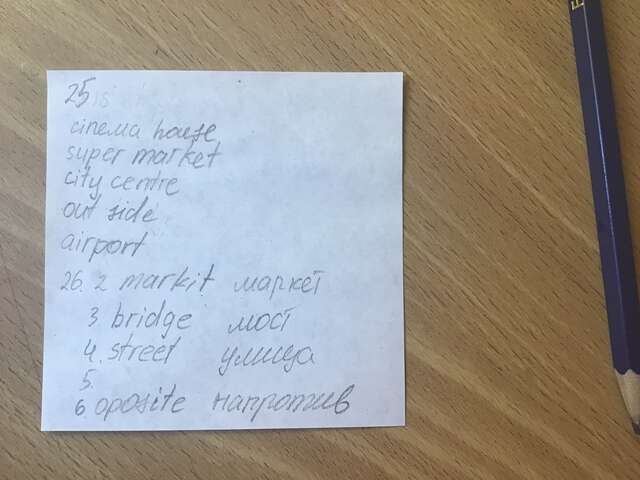 25
cinema house
super market
city centre
out side
airport
26. 2 markit маркет
3. bridge мост
4. street улица
5.
6. oposite напротив